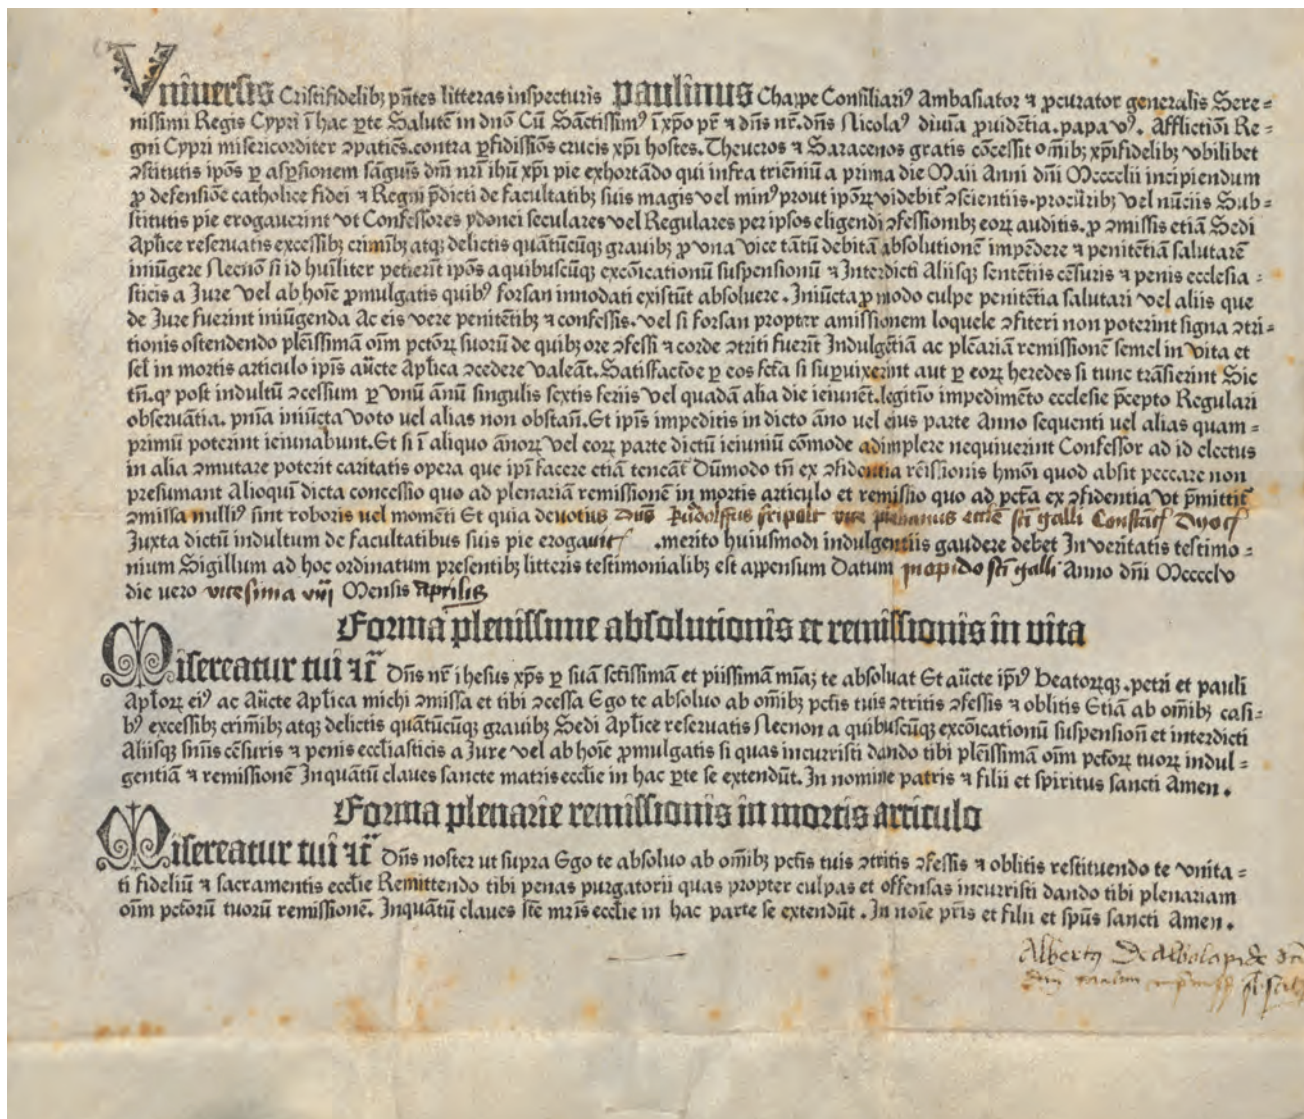 Vniuersis Cristifidelibꝫ pñtes litteras inspecturis Paulinus Chappe Consiliariꝰ Ambasiator ⁊ ꝓcurator generalis Sere=
nissimi Regis Cypri ī hac ꝑte Salutē in dño Cū Sāctissimꝰ ī xp̄o pr̄ ⁊ dn̄s nr̄. dn̄s Nicolaꝰ diuīa ꝓuidētia. papa vꝰ. Afflictiōi Re=
gni Cypri misericorditer ꝯpatiēs. contra ꝑfidissiōs crucis xp̄i hostes. Theucros ⁊ Saracenos gratis cōcessit om̄ibꝫ xp̄ifidelibꝫ vbilibet
ꝯstitutis ip̄os ꝑ aspsionem sāguīs dm̄ nr̄i ih̄u xp̄i pie exhortādo qui infra triēniū a prima die Maii Anni dn̄i Mcccclii incipiendum
ꝓ defensiōe catholice fidei ⁊ Regni p̄dicti de facultatibꝫ suis magis vel minꝰ prout ip̄oꝝ videbit̄ ꝯscientiis. procūribꝫ vel nūciis Sub=
stitutis pie erogauerint vt Confessores ydonei seculares vel Regulares per ipsos eligendi ꝯfessionibꝫ eoꝝ auditis. ꝓ ꝯmissis etiā Sedi
Aplīce reseruatis excessibꝫ crimībꝫ atqꝫ delictis quātūcūqꝫ grauibꝫ ꝓ vna vice tātū debitā absolutionē impēdere ⁊ penitētiā salutarē
iniūgere Necnō si id hūiliter petierīt ip̄os a quibuscūqꝫ excōicationū suspensionū ⁊ Interdicti Aliisqꝫ sentētiis cēsuris ⁊ penis ecclesia=
sticis a Jure vel ab hoīe ꝓmulgatis quibꝰ forsan innodati existūt absoluere. Iniūcta ꝓ modo culpe penitētia salutari vel aliis que
de Jure fuerint iniūgenda Ac eis vere penitētibꝫ ⁊ confessis. vel si forsan propter amissionem loquele ꝯfiteri non poterint signa ꝯtri=
tionis ostendendo plēissimā oīm pctōꝝ suorū de quibꝫ ore ꝯfessi ⁊ corde ꝯtriti fuerīt Indulgētiā ac plēariā remissionē semel in vita et
sel̄ in mortis articulo ip̄is aūcte Aplīca ꝯcedere valeāt. Satisfactōe ꝑ eos fc̄ta si suꝑuixerint aut ꝑ eoꝝ heredes si tunc trāsierint Sic
tn̄. qꝰ post indultū ꝯcessum ꝑ vnū ānū singulis sextis feriis vel quadā alia die ieiunēt. legitīo impedimēto ecclesie p̄cepto Regulari
obseruātia. pn̄ia iniūcta voto uel alias non obstan̄. Et ip̄is impeditis in dicto āno uel eius parte Anno sequenti uel alias quam=
primū poterint ieiunabunt. Et si ī aliquo ānoꝝ vel eoꝝ parte dictū ieiuniū cōmode adimplere nequiuerint Confessor ad id electus
in alia ꝯmutare poterit caritatis opera que ip̄i facere etiā teneāt̄ Dūmodo tn̄ ex ꝯfidentia rēissionis hm̄oi quod absit peccare non
presumant Alioquī dicta concessio quo ad plenariā remissionē in mortis articulo et remissio quo ad pctā ex ꝯfidentia vt p̄mittit̄
ꝯmissa nulliꝰ sint roboris uel momēti Et quia deuotus dn̄s Rudolffus plebanus eccīe sc̄ti galli
Juxta dictū indultum de facultatibus suis pie erogauit .merito huiusmodi indulgentiis gaudere debet In veritatis testimo=
nium Sigillum ad hoc ordinatum presentibꝫ litteris testimonialibꝫ est appensum Datum in opido sc̄ti galli Anno dn̄i Mcccclv
die uero vicesima viii Mensis Aprilis
Forma plenissime absolutionis et remissionis in vita
Misereatur tui ⁊c̄ Dn̄s nr̄ ihesus xp̄s ꝑ suā sctīssimā et piissimā mīaꝫ te absoluat Et aūcte ip̄iꝰ beatoꝝqꝫ .petri et pauli
Aplōꝝ eiꝰ ac aūcte Aplīca michi ꝯmissa et tibi ꝯcessa Ego te absoluo ab om̄ibꝫ pctīs tuis ꝯtritis ꝯfessis ⁊ oblitis Etiā ab om̄ibꝫ casi=
bꝰ excessibꝫ crimībꝫ atqꝫ delictis quātūcūqꝫ grauibꝫ Sedi Aplīce reseruatis Necnon a quibuscūqꝫ excōicationū suspensionū et interdicti
Aliisqꝫ sn̄īis cēsuris ⁊ penis eccl̄iasticis a Jure vel ab hoīe ꝓmulgatis si quas incurristi dando tibi plēissimā oīm pctōꝝ tuoꝝ indul=
gentiā ⁊ remissionē Inquātū claues sancte matris eccl̄ie in hac ꝑte se extendūt. In nomine patris ⁊ filii et spiritus sancti Amen.
Forma plenarie remissionis in mortis articulo
Misereatur tui ⁊c̄ Dn̄s noster ut supra Ego te absoluo ab om̄ibꝫ pctīs tuis ꝯtritis ꝯfessis ⁊ oblitis restituendo te vnita=
ti fideliū ⁊ sacramentis eccl̄ie Remittendo tibi penas purgatorii quas propter culpas et offensas incurristi dando tibi plenariam
oīm pctōrū tuorū remissionē. Inquātū claues stē mr̄is eccl̄ie in hac parte se extendūt. In noīe pr̄is et filii et sp̄us sancti Amen.
Albertꝰ De albolapide